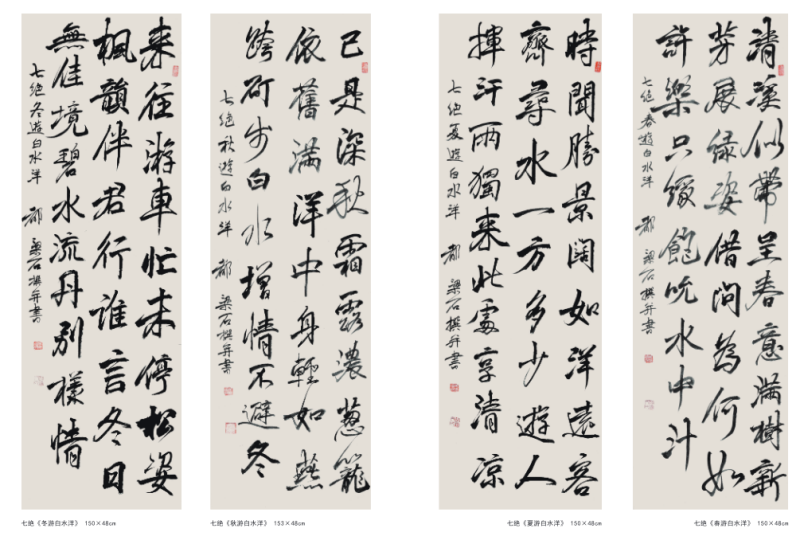 清溪似帶呈春意滿樹新
芳展绿姿借问為何如
許樂只緣飽吮水中汁
七绝春遊白水洋 都 梁石撰并書
時聞勝景闊如洋遠客
齊尋水一方多少遊人
揮汗雨獨來此處享清凉
七绝夏遊白水洋 都 梁石撰并書
已是深秋霜露濃蔥籠
依舊满洋中身輕如燕
跨矴步白水增情不避冬
七绝秋遊白水洋 都 梁石撰并書
来往游車忙未停松姿
枫韻伴君行誰言冬日
無佳境碧水流丹别樣情
七绝冬遊白水洋 都 梁石撰并書
七绝《冬游白水洋》 150×48cm
七绝《秋游白水洋》 153×48cm
七绝《夏游白水洋》 150×48cm
七绝《春游白水洋》 150×48cm